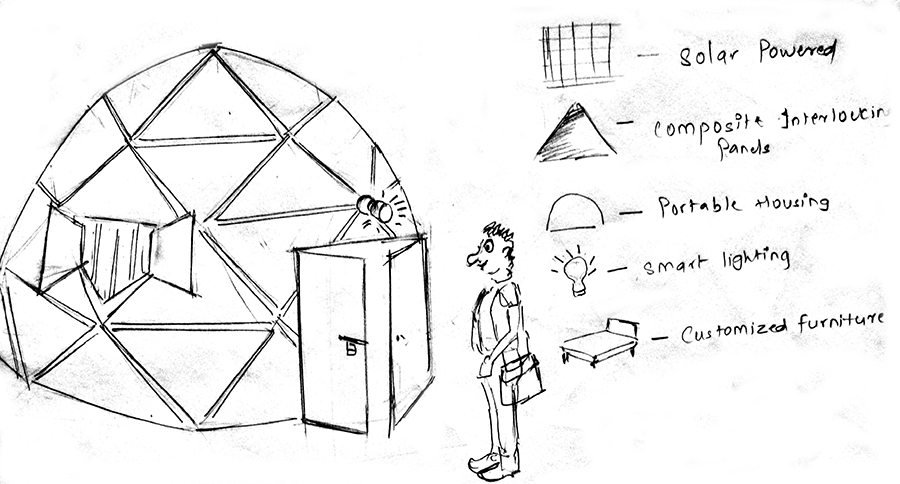 Solar Powered
Composite Interlockin
Panels
Portable Housing
Smart lighting
Customized furniture